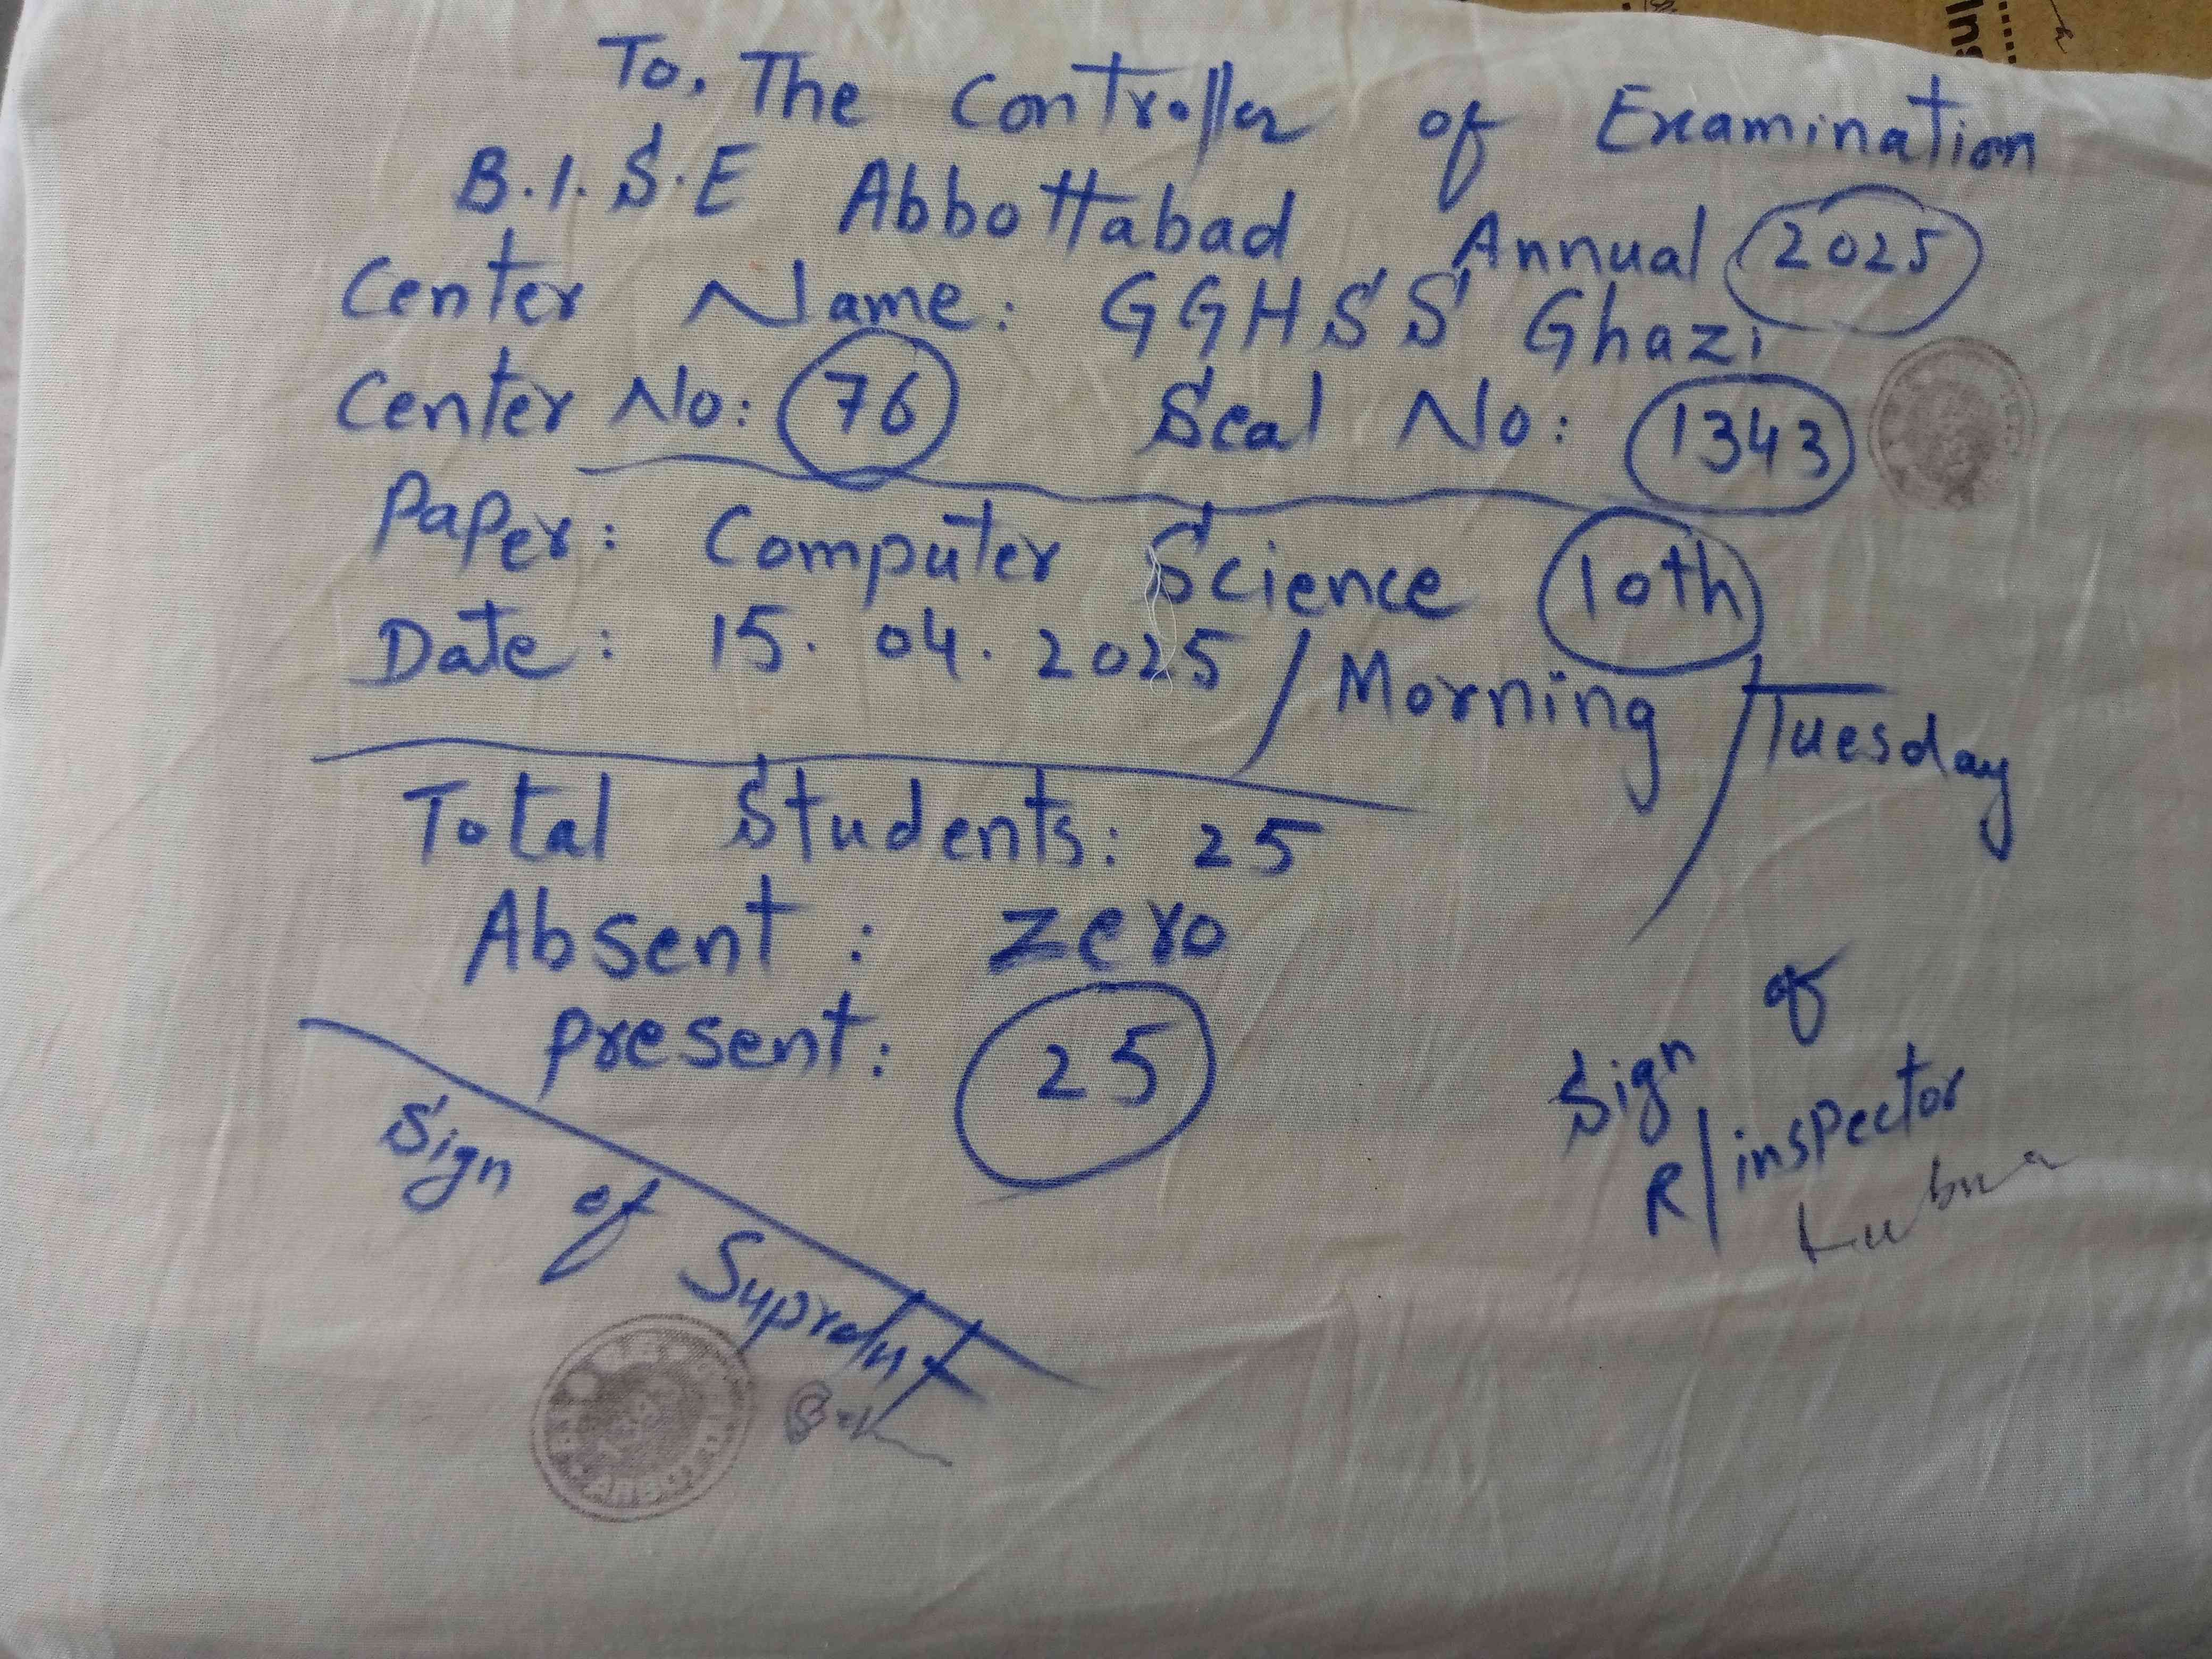 To, The Controller of Examination
B.I.S.E Abbottabad Annual 2025
Center Name: GGHSS Ghazi
Center No: 76 Seal No: 1343
Paper: Computer Science 10th
Date: 15.04.2025 / Morning / Tuesday
Total Students: 25
Absent: Zero
present: 25
Sign of Supretnt
Sign of
R/inspector
Lubna
Ins